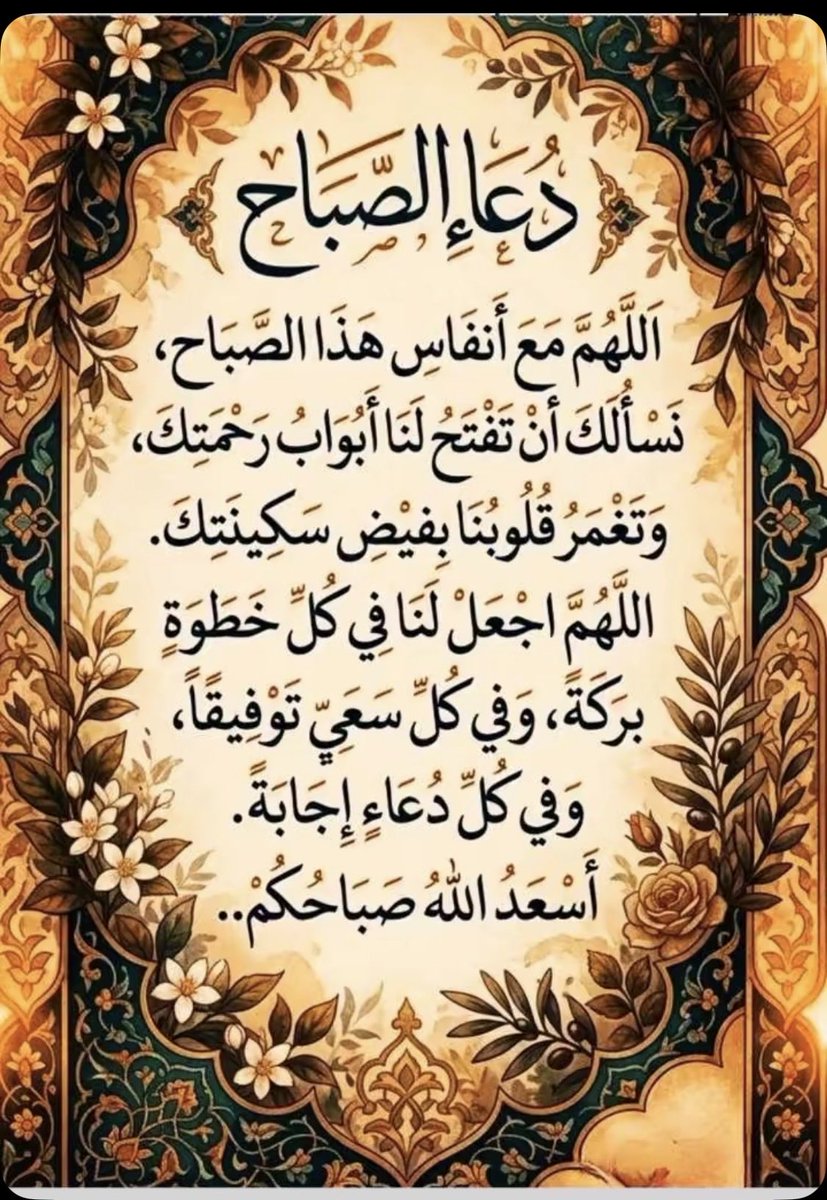 دُعَاءِ الصَّبَاح
اَللَّهُمَّ مَعَ أَنفَاسِ هَذَا الصَّبَاح،
نَسْأَلُكَ أَنْ تَفْتَحُ لَنَا أَبُوَابُ رَحْمَتِكَ،
وَتَغْمَرُ قُلُوبُنَا بِفيْضِ سَكِينَتِكَ.
اللَّهُمَّ اجْعَلْ لَنَا فِي كُلِّ خَطَوَةٍ
بَرَكَةً، وَفي كُلِّ سَعَيٍّ تَوْفِيقًاً،
وَفي كُلِّ دُعَاءٍ إِجَابَةً.
أَسْعَدُ اللهُ صَبَاحُكُمْ..